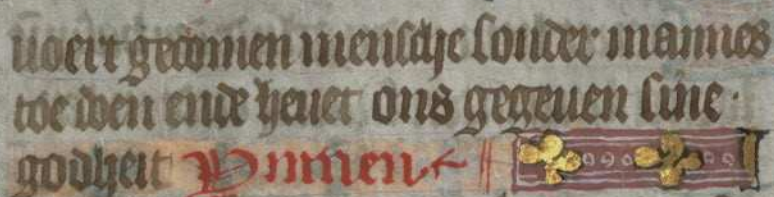 voert gecomen mensche sonder mannes
toe doen ende heuet ons gegeuen sine
godheit